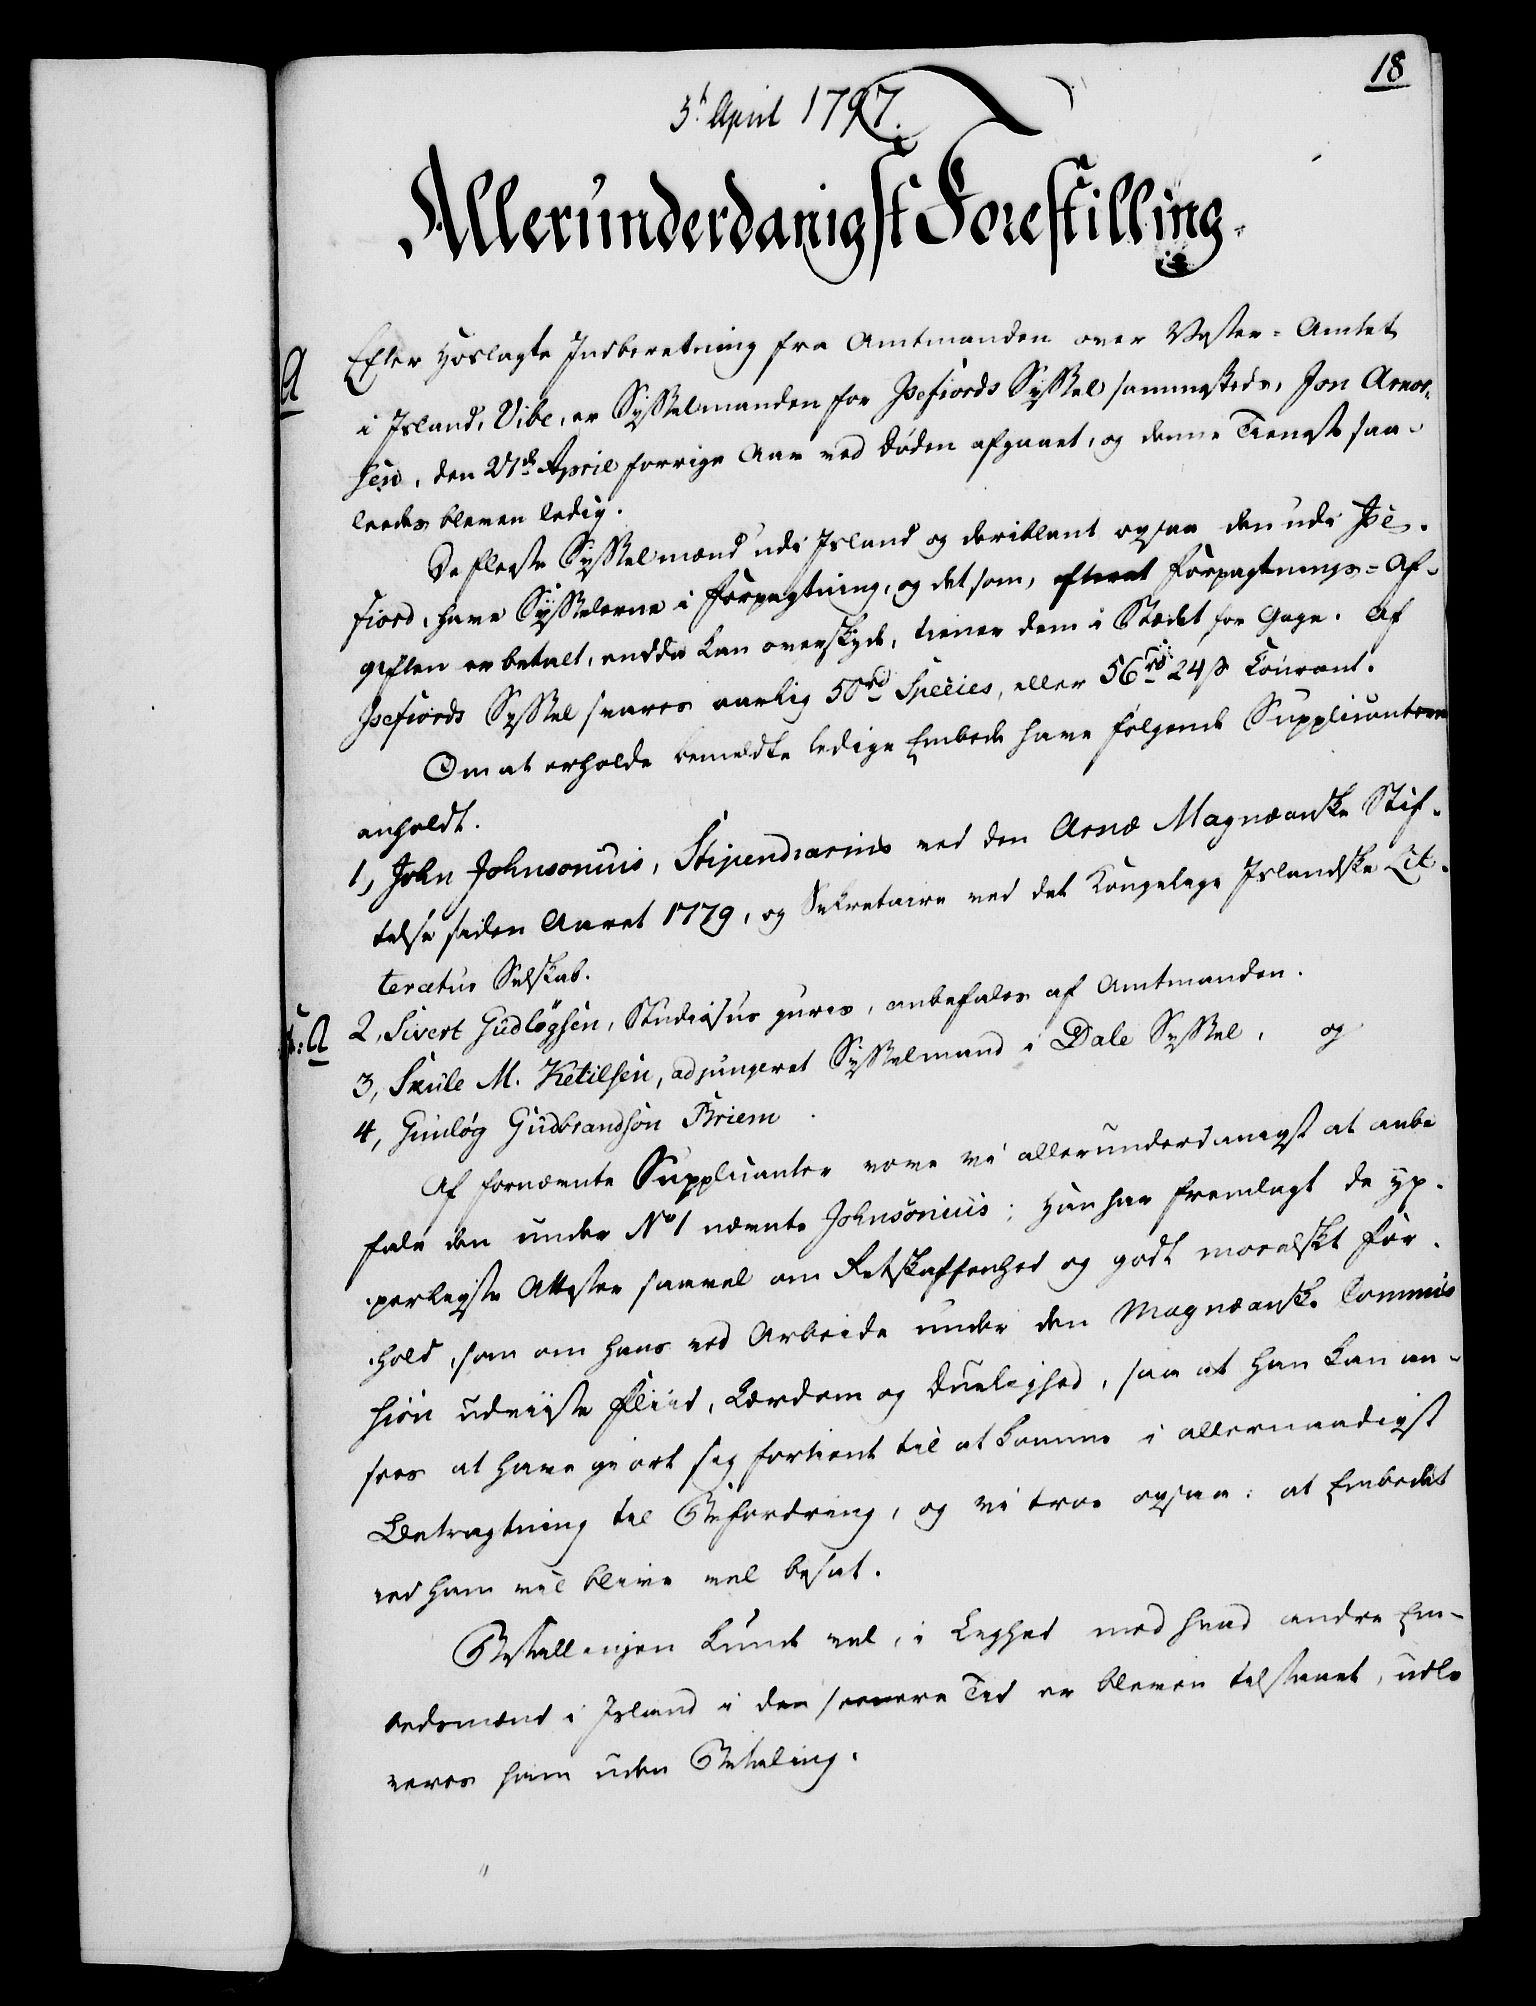 18
3' April 1797.
Allerunderdanigst Forestilling.
A
Efter hoslagte Indberetning fra Amtmanden over Vester-Amtet
i Island, Vibe, er Sysselmanden for Isefiords Syssel sammesteds, Jon Arnor-
sen, den 21de April forrige Aar ved Døden afgaaet, og denne Tieneste saa-
ledes bleven ledig.
De fleste Sysselmænd udi Island og deriblant ogsaa den udi Ise-
fiord, have Sysselerne i Forpagtning, og det som, efterat Forpagtnings-Af-
giften er betalt, endda kan overskyde, tiener dem i Stedet for Gage. Af
Isefiords Syssel svares aarlig 50 rd Species, eller 56 rd 24 s Courant.
Om at erholde bemeldte ledige Embede have følgende Supplicantere
anholdt.
1, John Johnsonius, Stipendiarius ved den Arnæ Magnæanske Stif-
telse siden Aaret 1779, og Sekretaire ved det Kongelige Islandske Lit-
teratur Selskab.
A
2, Sivert Gudløgsen, Studiosus juris, anbefales af Amtmanden.
3, Skule M. Ketilsen, adjungeret Sysselmand i Dale Syssel, og
4, Gunløg Gudbrandson Briem.
Af fornævnte Supplicanter vove vi allerunderdanigst at anbe
fale den under No 1 nævnte Johnsonius; han har fremlagt de yp-
perligste Attester saavel om Retskaffenhed og godt moralskt For-
hold, som om hans ved Arbeide under den Magnæansk. Commis
sion udviiste Fliid, Lærdom og Duelighed, saa at han kan an-
sees at have giort sig fortient til at komme i allernaadigst
Betragtning til Befordring, og vi troe ogsaa: at Embedet
ved ham vil blive vel besat.
Bestallingen kunde vel, i Lighed med hvad andre Em-
bedsmænd i Island i den senere Tid er bleven tilstaaet, udle
veres ham uden Betaling.